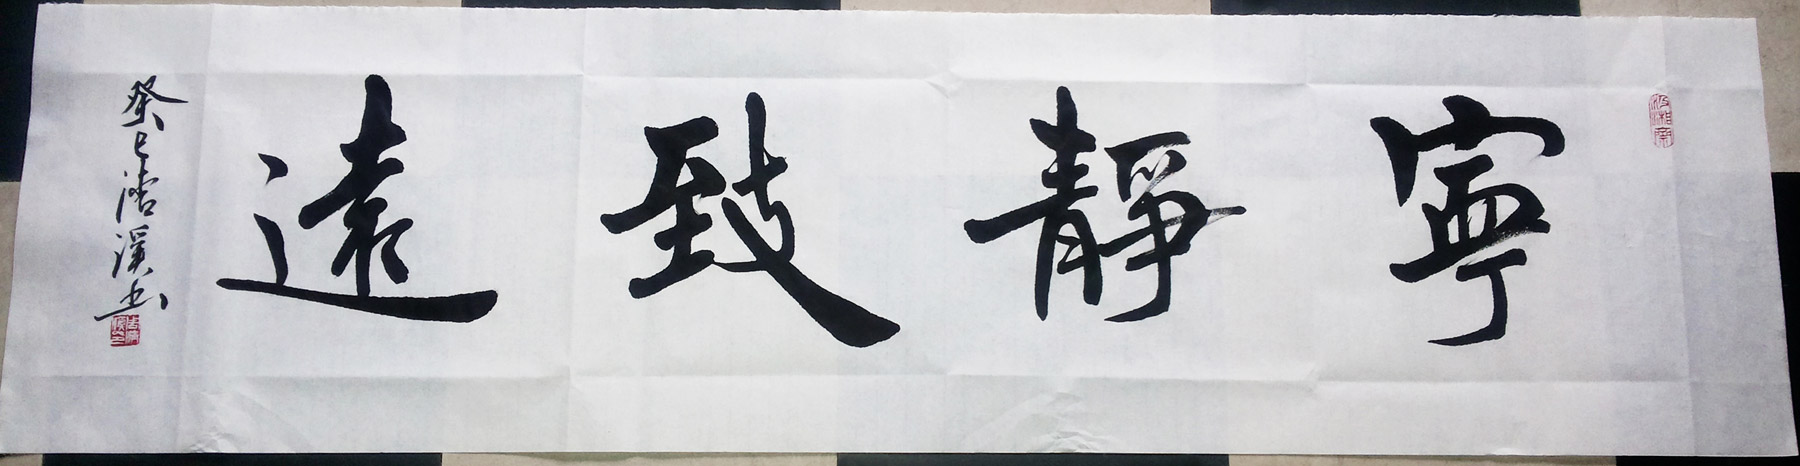 寧靜致遠
癸巳清溪书